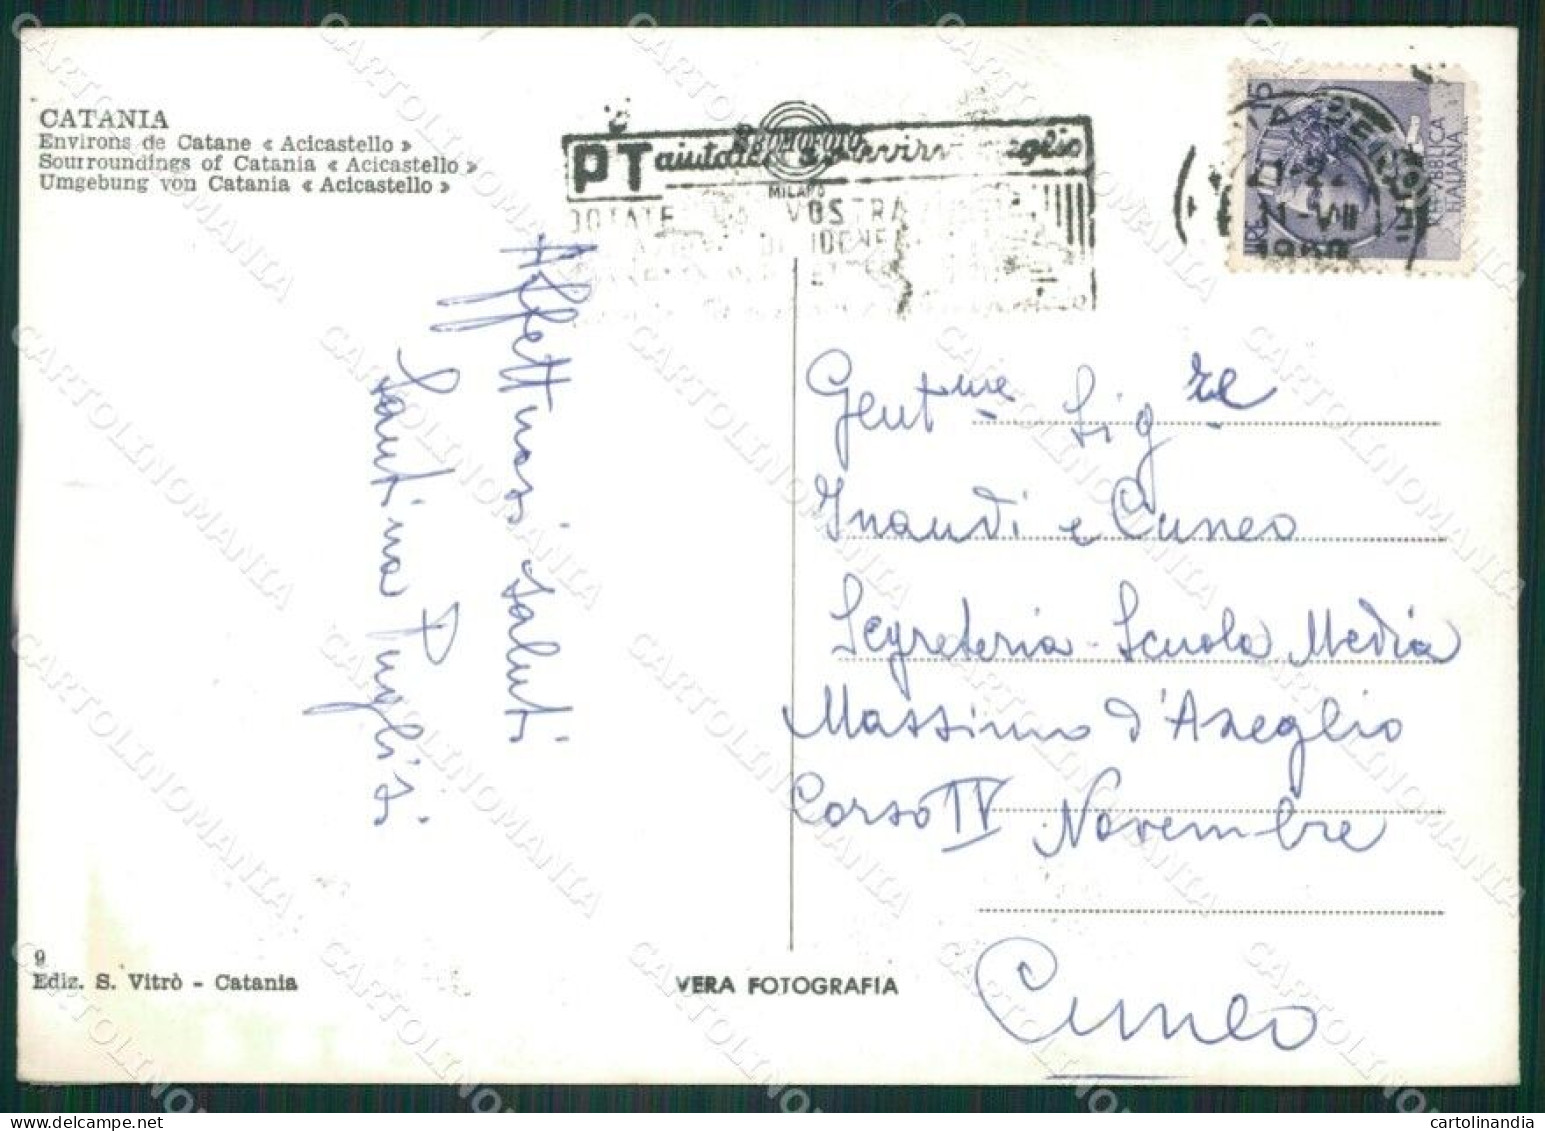 CATANIA
Environs de Catane « Acicastello »
Sourroundings of Catania « Acicastello »
Umgebung von Catania « Acicastello »
PT aiutateci a servirvi meglio
DOTATE LA VOSTRA
MILANO
LIRE 15
REPVBBLICA
ITALIANA
21-VII
Affettuosi saluti
Santina Puglisi
Gent.me Sig.re
Inaudi e Cuneo
Segreteria - Scuola Media
Massimo d'Azeglio
Corso IV Novembre
Cuneo
9
Ediz. S. Vitrò - Catania
VERA FOTOGRAFIA
CARTOLINOMANIA
cartolinandia